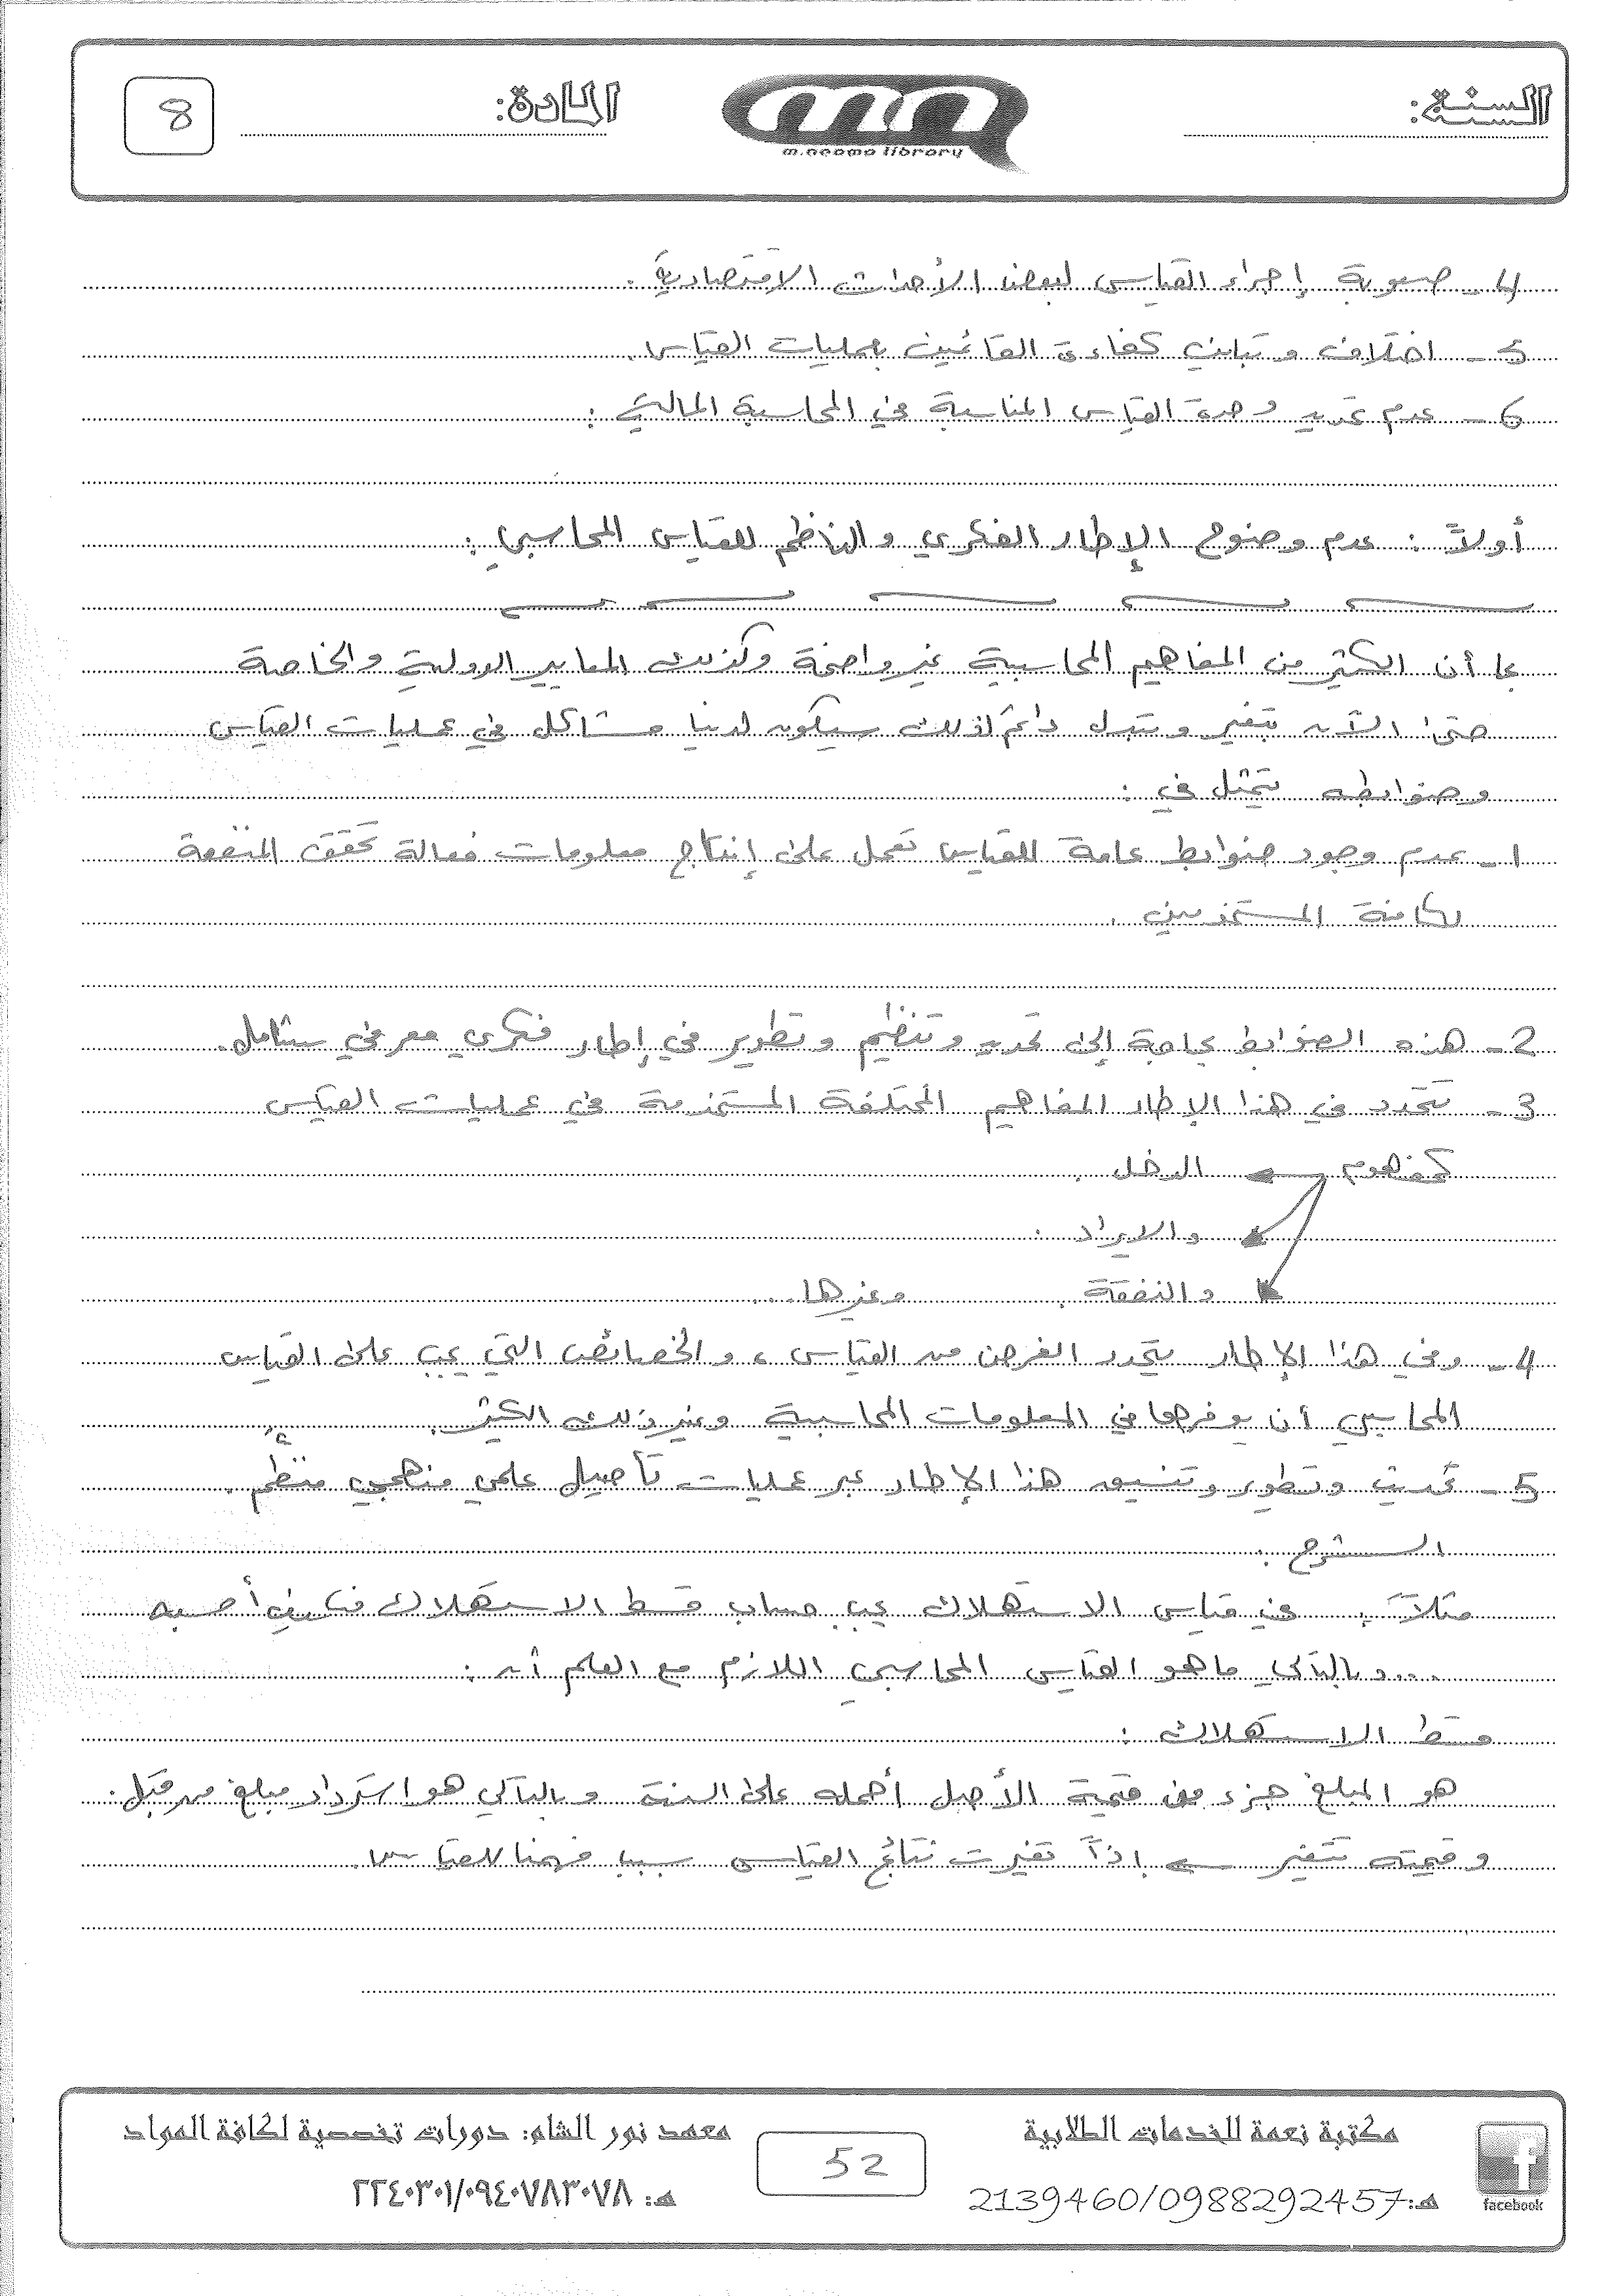 السنة:
m.neama library
المادة:
8
4- صعوبة إجراء القياس لبعض الأحداث الاقتصادية.
5- اختلاف وتباين كفاءة القائمين بعمليات القياس.
6- عدم تحديد وحدة القياس المناسبة في المحاسبة المالية:
أولاً: عدم وضوح الإطار الفكري والناظم للقياس المحاسبي:
بما أن الكثير من المفاهيم المحاسبية غير واضحة وكذلك المعايير الدولية والخاصة
حتى الآن بتغير وتبدل دائم لذلك سيكون لدينا مشاكل في عمليات القياس
وضوابطه تتمثل في:
1- عدم وجود ضوابط عامة للقياس تعمل على إنتاج معلومات فعالة تحقق المنفعة
لكافة المستخدمين.
2- هذه الضوابط بحاجة إلى تحديد وتنظيم وتطوير في إطار فكري معرفي شامل.
3- تتحدد في هذا الإطار المفاهيم المختلفة المستخدمة في عمليات القياس
كمفهوم ← الدخل.
والايراد.
والنفقة. وغيرها...
4- وفي هذا الإطار يتحدد الغرض من القياس، والخصائص التي يجب على القياس
المحاسبي أن يوفرها في المعلومات المحاسبية وغير ذلك الكثير.
5- تحديث وتطوير وتنسيق هذا الإطار عبر عمليات تأصيل علمي منهجي منظم.
الشرح:
مثلاً: في قياس الاستهلاك يجب حساب قسط الاستهلاك أحسبه
.... وبالتالي ما هو القياس المحاسبي اللازم مع العلم أن:
قسط الاستهلاك:
هو المبلغ جزء من قيمة الأصل أحمله على السنة وبالتالي هو استرداد مبلغ من قبل.
وقيمته تتغير ← إذاً تغيرت نتائج القياس بسبب فهمنا للقياس.
مكتبة نعمة للخدمات الطلابية
هـ: 2139460/0988292457
facebook
52
معهد نور الشام: دورات تخصصية لكافة المواد
هـ: ٢٢٤٠٣٠١/٠٩٤٠٧٨٣٠٧٨